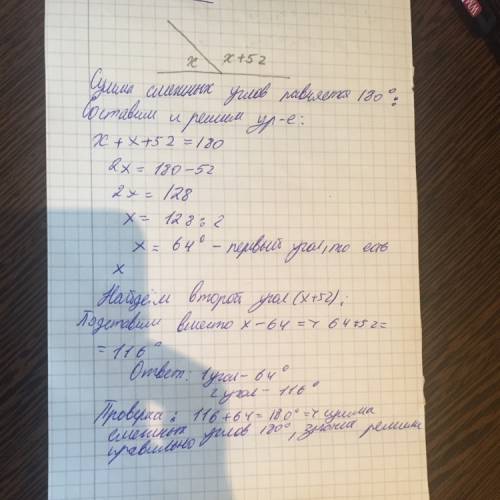 x x+52
Сумма смежных углов равняется 180°:
Составим и решим ур-е:
x + x + 52 = 180
2x = 180 - 52
2x = 128
x = 128 : 2
x = 64° - первый угол, то есть
x
Найдём второй угол (x+52);
Подставим вместо x - 64 => 64+52=
= 116°
Ответ: 1 угол - 64°
2 угол - 116°
Проверка: 116 + 64 = 180° => сумма
смежных углов 180°, решили
правильно